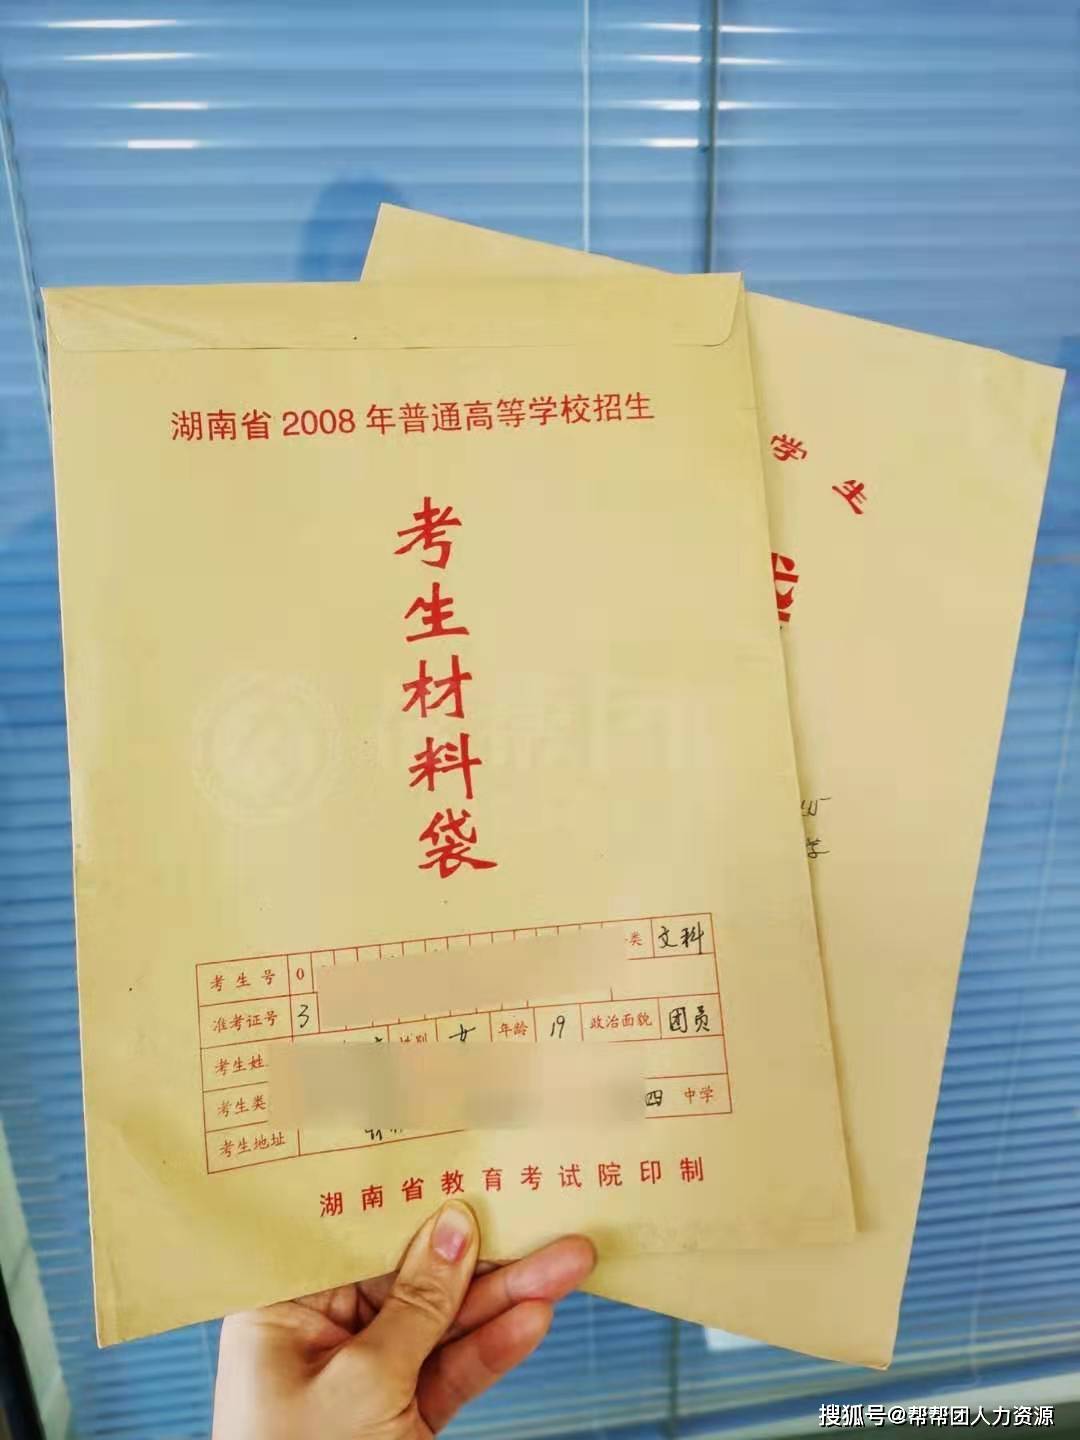 湖南省2008年普通高等学校招生
考生材料袋
学生
袋
学
考生号 0 类 文科
准考证号 3
考生姓 性别 女 年龄 19 政治面貌 团员
考生类
四 中学
考生地址
湖南省教育考试院印制
搜狐号@帮帮团人力资源